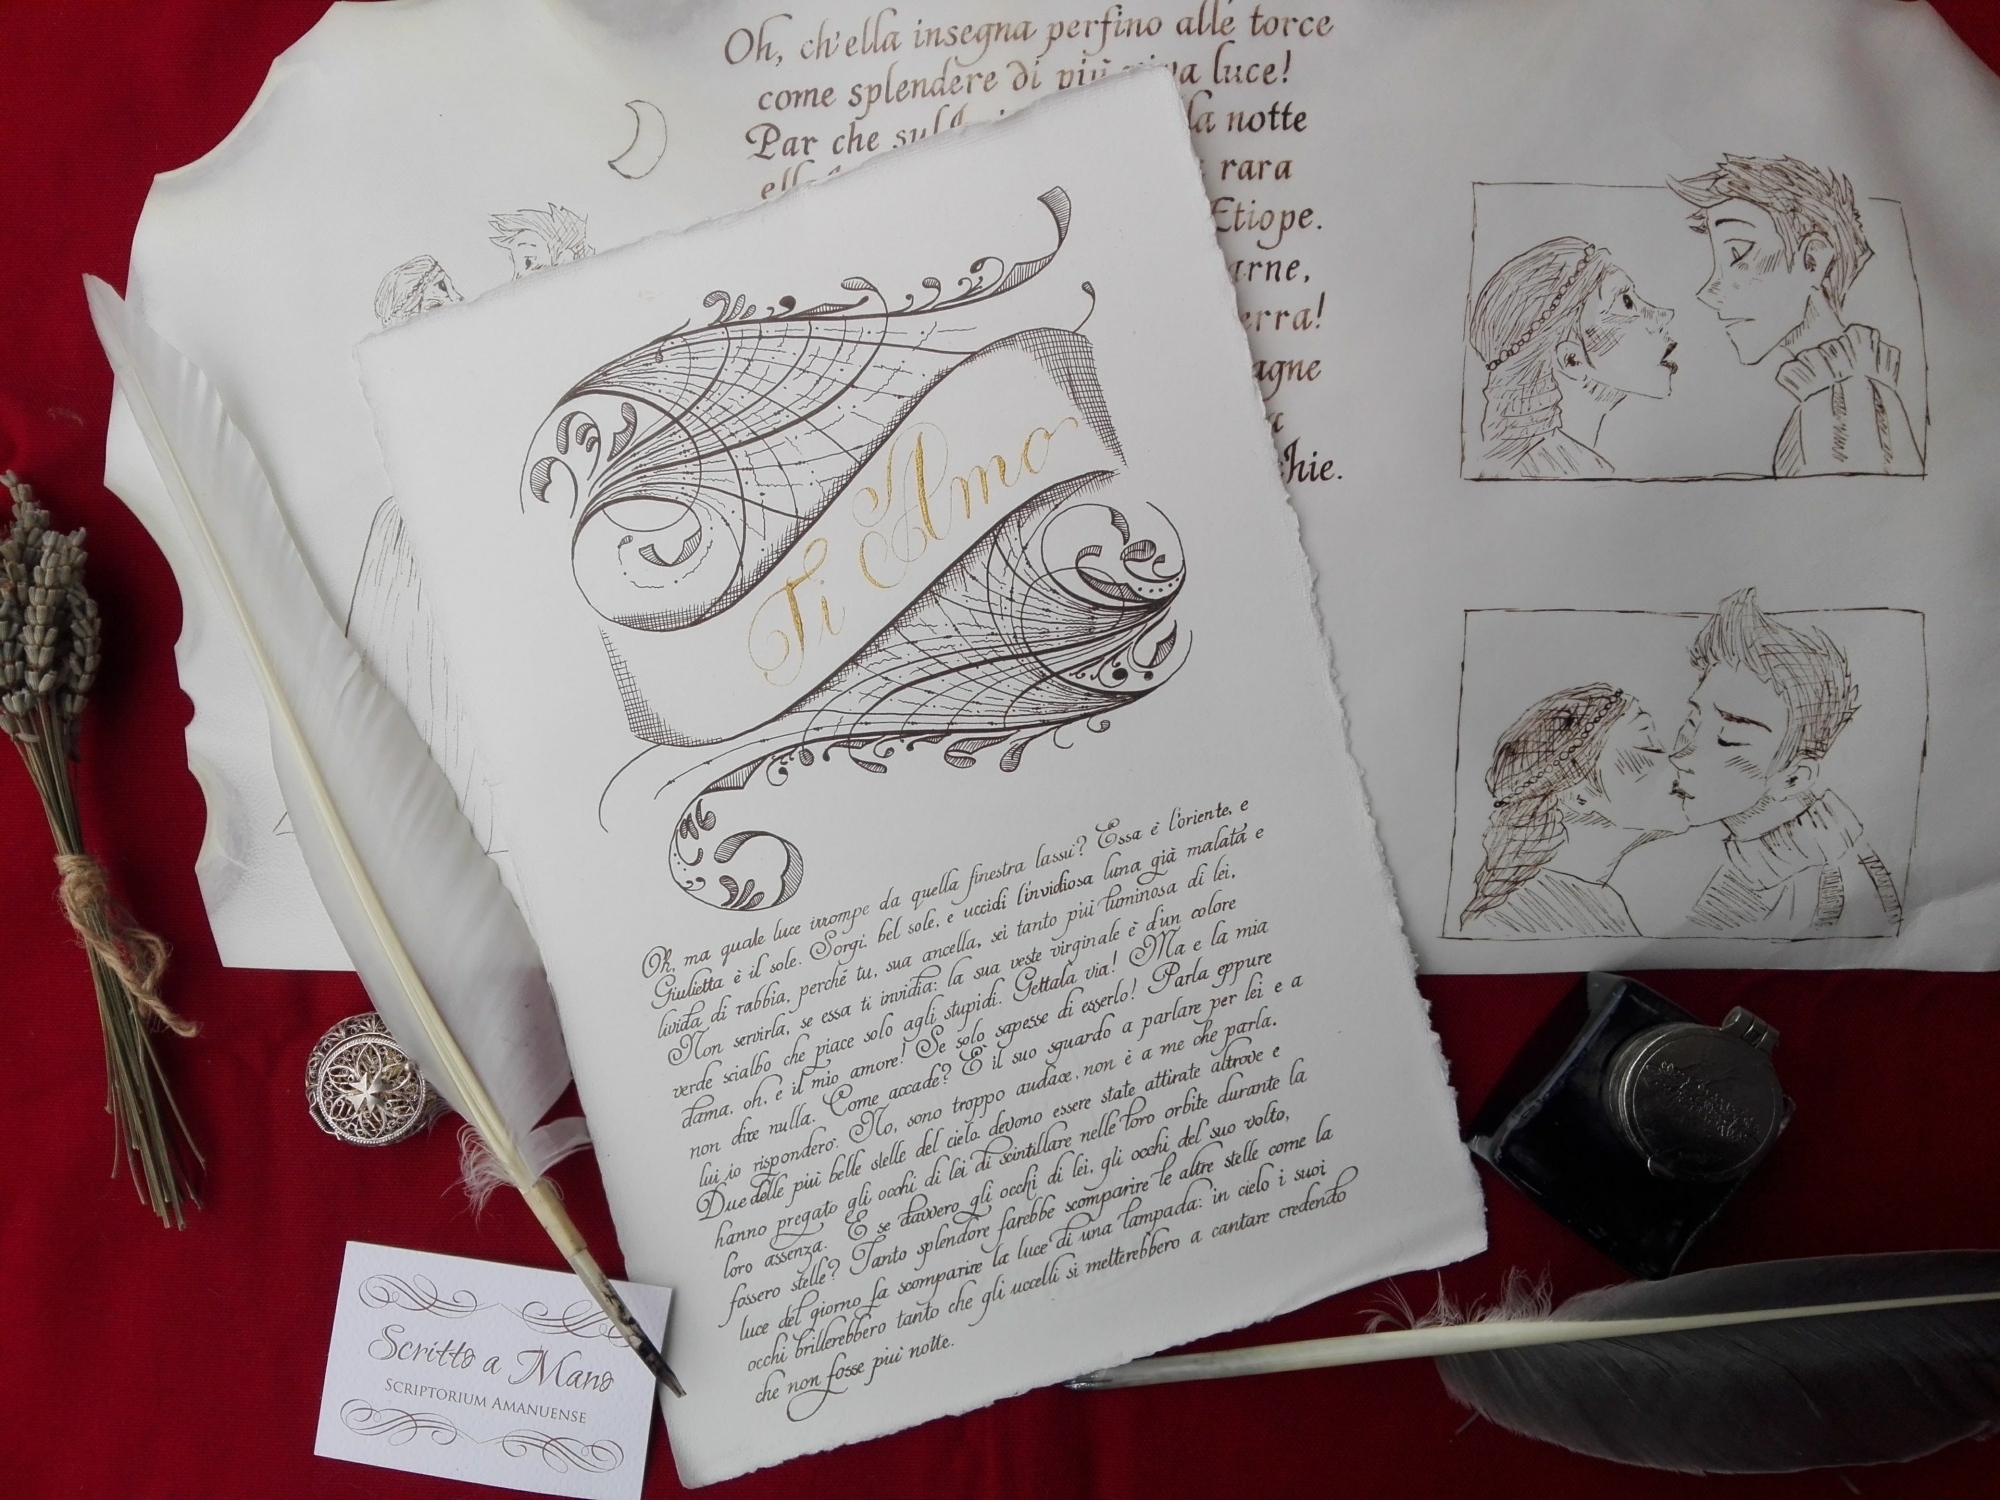 Oh, ch'ella insegna perfino alle torce
come splendere di più viva luce!
Par che sul la notte
rara
Etiope.
arne,
erra!
agne
a
chie.
Ti Amo
Oh, ma quale luce irrompe da quella finestra lassù? Essa è l'oriente, e
Giulietta è il sole. Sorgi, bel sole, e uccidi l'invidiosa luna già malata e
livida di rabbia, perché tu, sua ancella, sei tanto più luminosa di lei.
Non servirla, se essa ti invidia; la sua veste virginale è d'un colore
verde scialbo che piace solo agli stupidi. Gettala via! Ma e la mia
dama, oh, e il mio amore! Se solo sapesse di esserlo! Parla eppure
non dire nulla. Come accade? È il suo sguardo a parlare per lei e a
lui io risponderò. No, sono troppo audace, non è a me che parla.
Due delle più belle stelle del cielo devono essere state attirate altrove e
hanno pregato gli occhi di lei di scintillare nelle loro orbite durante la
loro assenza. E se davvero gli occhi di lei, gli occhi del suo volto,
fossero stelle? Tanto splendore farebbe scomparire le altre stelle come la
luce del giorno fa scomparire la luce di una lampada; in cielo i suoi
occhi brillerebbero tanto che gli uccelli si metterebbero a cantare credendo
che non fosse più notte.
Scritto a Mano
Scriptorium Amanuense